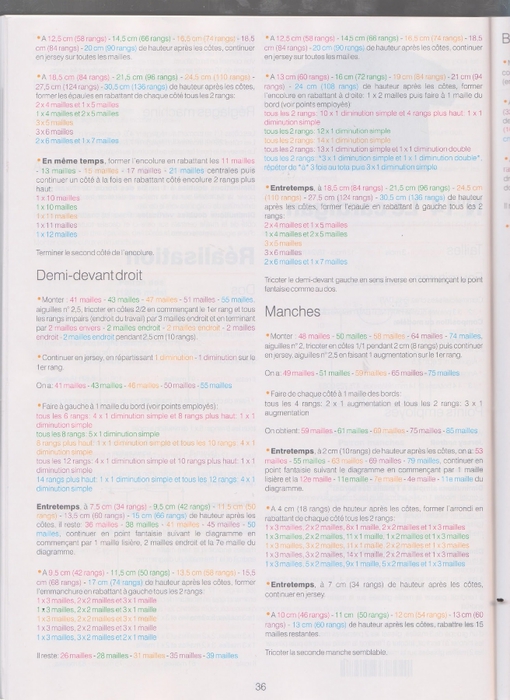 *A 12,5 cm (58 rangs) - 14,5 cm (66 rangs) - 16,5 cm (74 rangs) - 18,5
cm (84 rangs) - 20 cm (90 rangs) de hauteur après les côtes, continuer
en jersey sur toutes les mailles.
*A 18,5 cm (84 rangs) - 21,5 cm (96 rangs) - 24,5 cm (110 rangs) -
27,5 cm (124 rangs) - 30,5 cm (136 rangs) de hauteur après les côtes,
former les épaules en rabattant de chaque côté tous les 2 rangs:
2 x 4 mailles et 1 x 5 mailles
1 x 4 mailles et 2 x 5 mailles
3 x 5 mailles
3 x 6 mailles
2 x 6 mailles et 1 x 7 mailles
*En même temps, former l'encolure en rabattant les 11 mailles
- 13 mailles - 15 mailles - 17 mailles - 21 mailles centrales puis
continuer un côté à la fois en rabattant côté encolure 2 rangs plus
haut:
1 x 10 mailles
1 x 10 mailles
1 x 11 mailles
1 x 11 mailles
1 x 12 mailles
Terminer le second côté de l'encolure.
Demi-devant droit
*Monter: 41 mailles - 43 mailles - 47 mailles - 51 mailles - 55 mailles,
aiguilles n° 2,5, tricoter en côtes 2/2 en commençant le 1er rang et tous
les rangs impairs (endroit du travail) par 3 mailles endroit et en terminant
par 2 mailles envers - 2 mailles endroit - 2 mailles endroit - 2 mailles
endroit - 2 mailles endroit pendant 2,5 cm (10 rangs).
*Continuer en jersey, en répartissant 1 diminution - 1 diminution sur le
1er rang.
On a: 41 mailles - 43 mailles - 46 mailles - 50 mailles - 55 mailles
*Faire à gauche à 1 maille du bord (voir points employés):
tous les 6 rangs: 4 x 1 diminution simple et 8 rangs plus haut: 1 x 1
diminution simple
tous les 8 rangs: 5 x 1 diminution simple
8 rangs plus haut: 1 x 1 diminution simple et tous les 10 rangs: 4 x 1
diminution simple
tous les 12 rangs: 4 x 1 diminution simple et 10 rangs plus haut: 1 x 1
diminution simple
14 rangs plus haut: 1 x 1 diminution simple et tous les 12 rangs: 4 x 1
diminution simple
Entretemps, à 7,5 cm (34 rangs) - 9,5 cm (42 rangs) - 11,5 cm (50
rangs) - 13,5 cm (60 rangs) - 15 cm (66 rangs) de hauteur après les
côtes, il reste: 36 mailles - 38 mailles - 41 mailles - 45 mailles - 50
mailles, continuer en point fantaisie suivant le diagramme en
commençant par 1 maille lisière, 2 mailles endroit et la 7e maille du
diagramme.
*A 9,5 cm (42 rangs) - 11,5 cm (50 rangs) - 13,5 cm (58 rangs) - 15,5
cm (68 rangs) - 17 cm (74 rangs) de hauteur après les côtes, former
l'emmanchure en rabattant à gauche tous les 2 rangs:
1 x 3 mailles, 2 x 2 mailles et 3 x 1 maille
1 x 3 mailles, 2 x 2 mailles et 3 x 1 maille
1 x 3 mailles, 2 x 2 mailles et 3 x 1 maille
1 x 3 mailles, 2 x 2 mailles et 3 x 1 maille
1 x 3 mailles, 3 x 2 mailles et 3 x 1 maille
Il reste: 26 mailles - 28 mailles - 31 mailles - 35 mailles - 39 mailles
*A 12,5 cm (58 rangs) - 14,5 cm (66 rangs) - 16,5 cm (74 rangs) - 18,5
cm (84 rangs) - 20 cm (90 rangs) de hauteur après les côtes, continuer
en jersey sur toutes les mailles.
*A 13 cm (60 rangs) - 16 cm (72 rangs) - 19 cm (84 rangs) - 21 cm (94
rangs) - 24 cm (108 rangs) de hauteur après les côtes, former
l'encolure en rabattant à droite: 1 x 2 mailles puis faire à 1 maille du
bord (voir points employés)
tous les 2 rangs: 10 x 1 diminution simple et 4 rangs plus haut: 1 x 1
diminution simple
tous les 2 rangs: 12 x 1 diminution simple
tous les 2 rangs: 14 x 1 diminution simple
tous les 2 rangs: 13 x 1 diminution simple et 1 x 1 diminution double
tous les 2 rangs: *3 x 1 diminution simple et 1 x 1 diminution double*,
répéter de *à* 3 fois au total puis 3 x 1 diminution simple
*Entretemps, à 18,5 cm (84 rangs) - 21,5 cm (96 rangs) - 24,5 cm
(110 rangs) - 27,5 cm (124 rangs) - 30,5 cm (136 rangs) de hauteur
après les côtes, former l'épaule en rabattant à gauche tous les 2
rangs:
2 x 4 mailles et 1 x 5 mailles
1 x 4 mailles et 2 x 5 mailles
3 x 5 mailles
3 x 6 mailles
2 x 6 mailles et 1 x 7 mailles
Tricoter le demi-devant gauche en sens inverse en commençant le point
fantaisie comme au dos.
Manches
*Monter: 48 mailles - 50 mailles - 58 mailles - 64 mailles - 74 mailles,
aiguilles n° 2, tricoter en côtes 1/1 pendant 2 cm (8 rangs) puis continuer
en jersey, aiguilles n° 2,5 en faisant 1 augmentation sur le 1er rang.
On a: 49 mailles - 51 mailles - 59 mailles - 65 mailles - 75 mailles
*Faire de chaque côté à 1 maille des bords:
tous les 4 rangs: 2 x 1 augmentation et tous les 2 rangs: 3 x 1
augmentation
On obtient: 59 mailles - 61 mailles - 69 mailles - 75 mailles - 85 mailles
*Entretemps, à 2 cm (10 rangs) de hauteur après les côtes, on a: 53
mailles - 55 mailles - 63 mailles - 69 mailles - 79 mailles, continuer en
point fantaisie suivant le diagramme en commençant par 1 maille
lisière et la 12e maille - 11e maille - 7e maille - 4e maille - 11e maille du
diagramme.
*A 4 cm (18 rangs) de hauteur après les côtes, former l'arrondi en
rabattant de chaque côté tous les 2 rangs:
1 x 3 mailles, 2 x 2 mailles, 8 x 1 maille, 2 x 2 mailles et 1 x 3 mailles
*Entretemps, à 7 cm (34 rangs) de hauteur après les côtes,
continuer en jersey.
*A 10 cm (46 rangs) - 11 cm (50 rangs) - 12 cm (54 rangs) - 13 cm (60
rangs) - 13 cm (60 rangs) de hauteur après les côtes, rabattre les 15
mailles restantes.
Tricoter la seconde manche semblable.
36